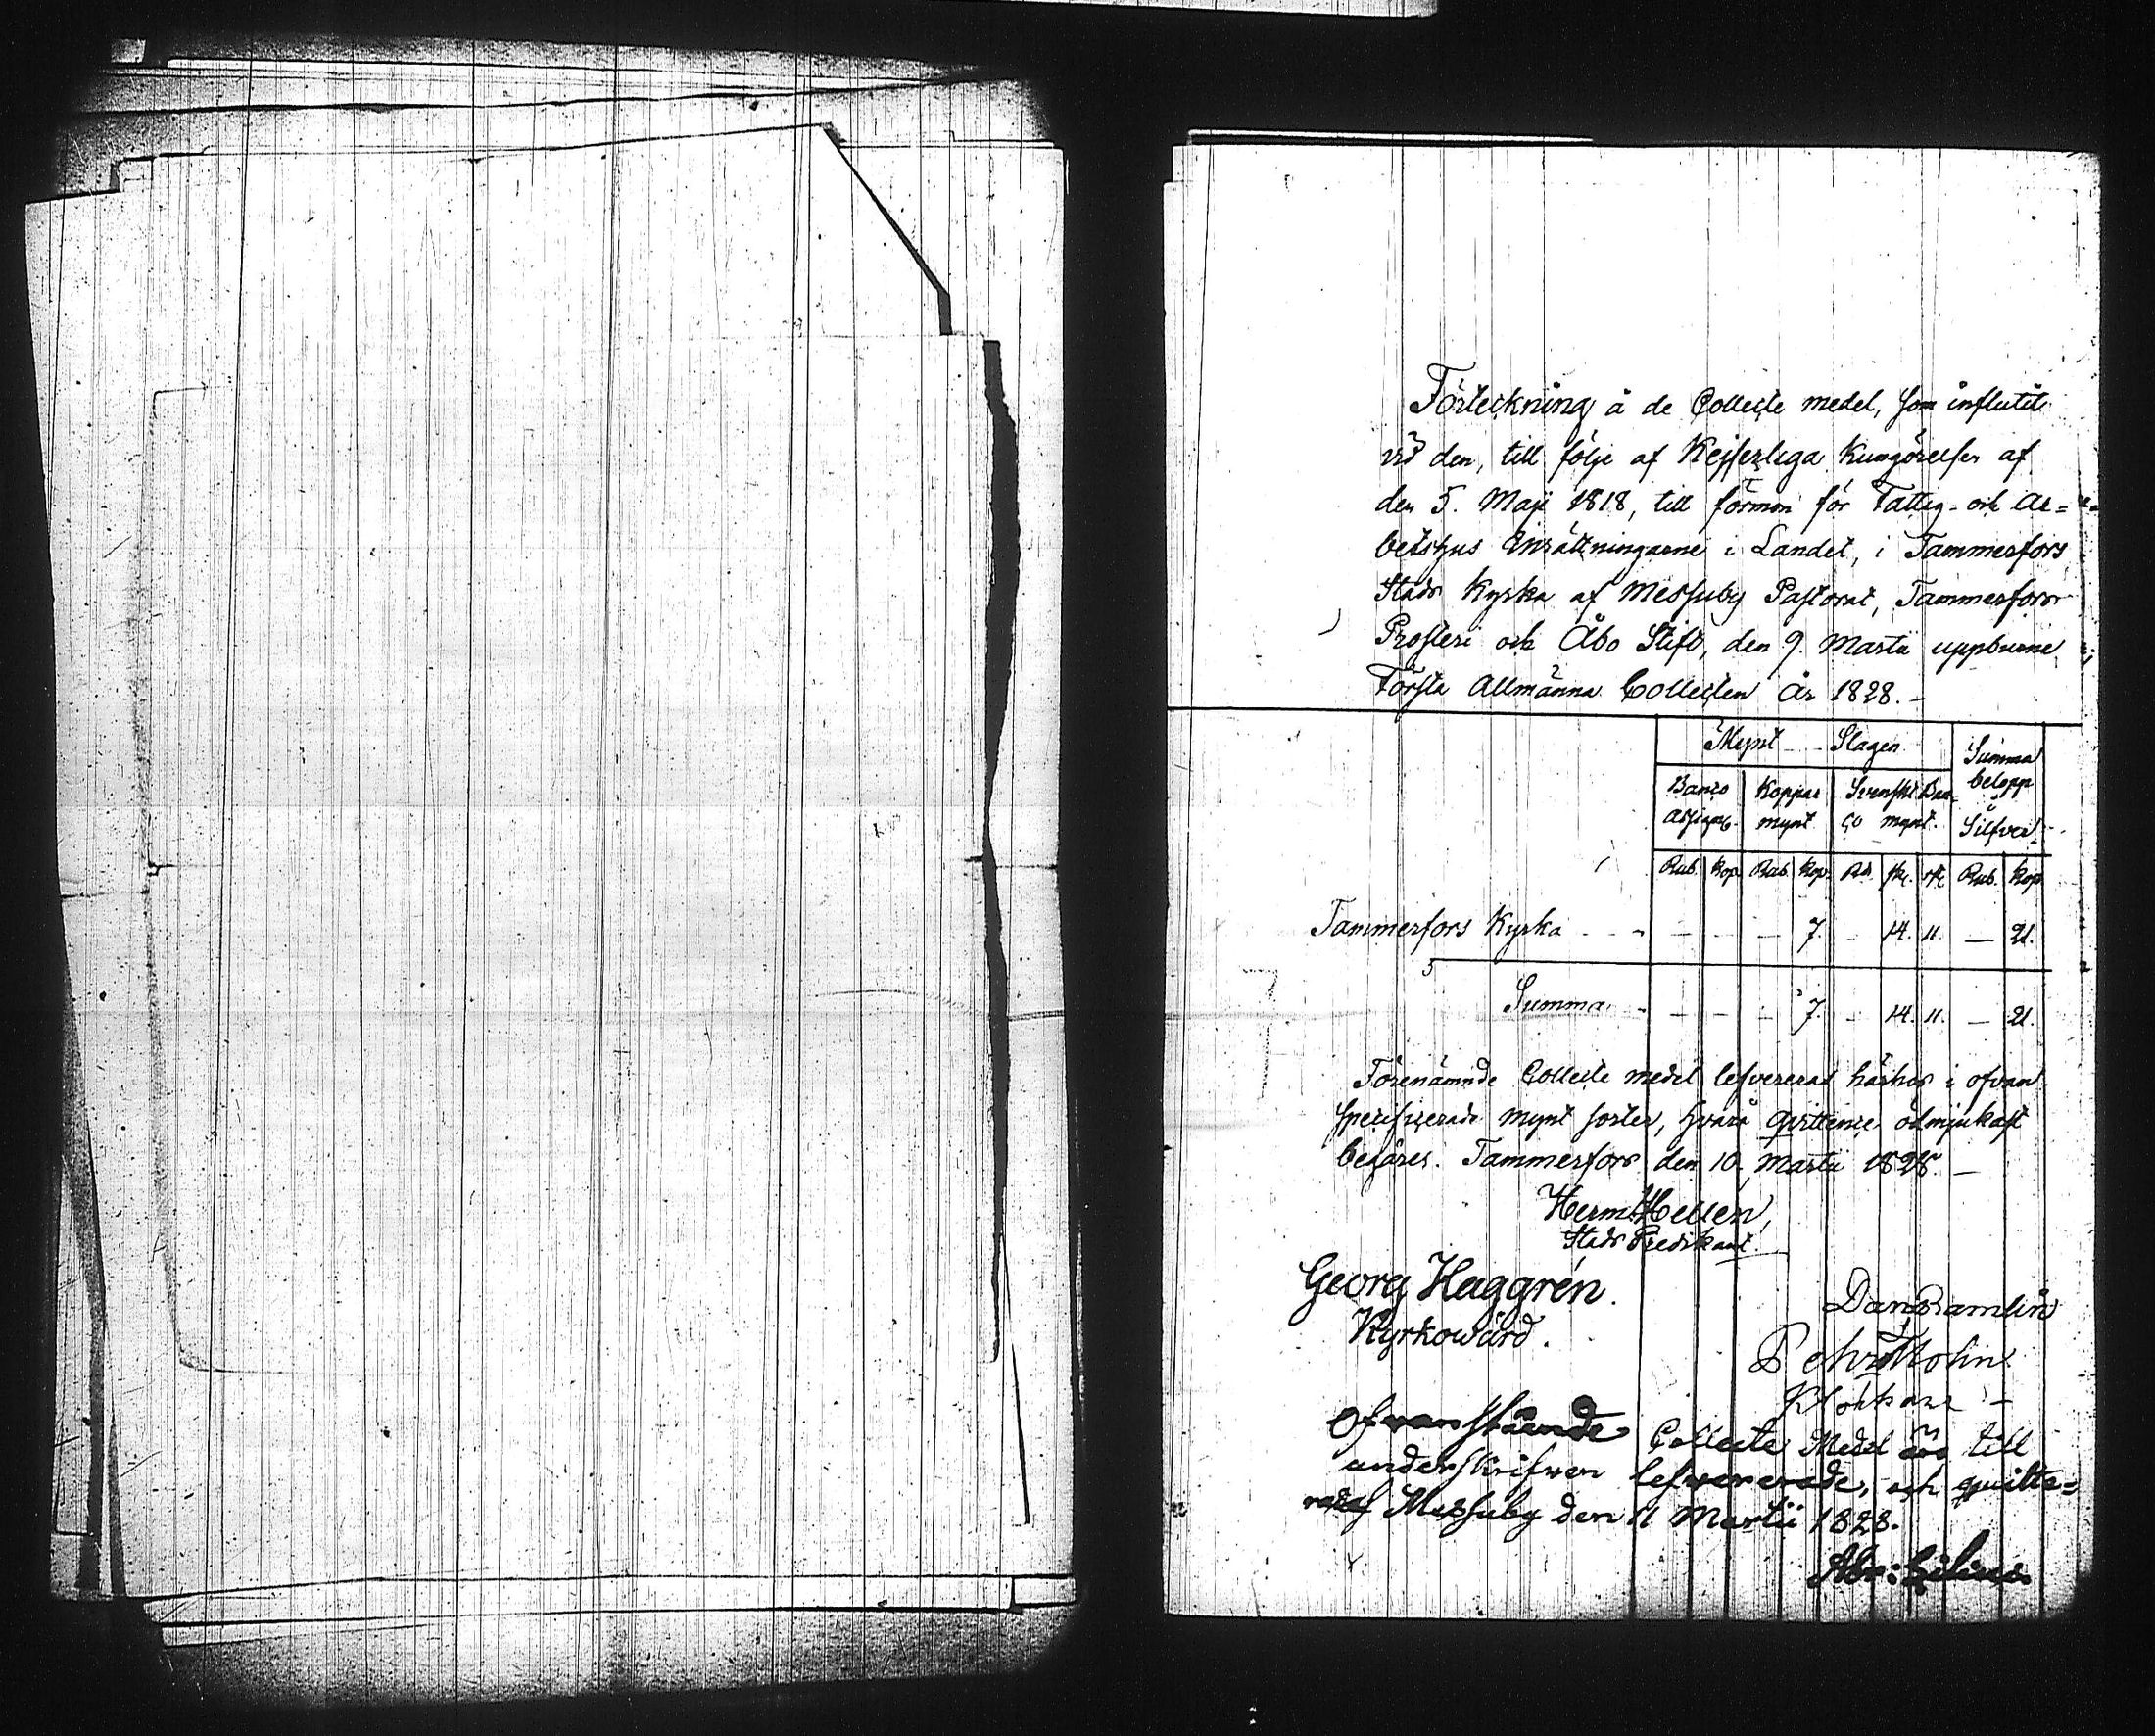 Förteckning å de Collecte medel, som influtit
vid den, till följe af Kejserliga Kungörelsen af
den 5. Maji 1818, till förmon för Fattig- och Ar=
betshus Inrättningarne i Landet, i Tammerfors
Stads Kyrka af Messuby Pastorat, Tammerfors
Prosteri och Åbo Stift, den 9. Martii uppburne
Första Allmänna Collecten År 1828. -
Mynt Slagen
Summa
belopp
i
Silfver
Banco
Assignr
Koppar
mynt
Svenskt Ban-
co mynt.
Rub. Kop. Rub. Kop. Rd. sk. rst. Rub. Kop
Tammerfors Kyrka - - - - - 7. - 14. 11. - 21.
Summa - - - - 7. - 14. 11. - 21.
Förenämnde Collecte medel lefvereras härhos i ofvan
specificerade mynt sorter, hvarå qvittence ödmjukast
begäres. Tammerfors den 10. Martii 1828. -
Herm: Hellén,
Stads Predikant.
Georg Häggrén.
Kyrkowärd.
Dan Ramlin
Petr Molin
Klockare -
Ofvanstående Collecte Medel äro till
underskrifwen lefvererade, och quitte=
ras af Messuby den 11 Martii 1828.
Abr: